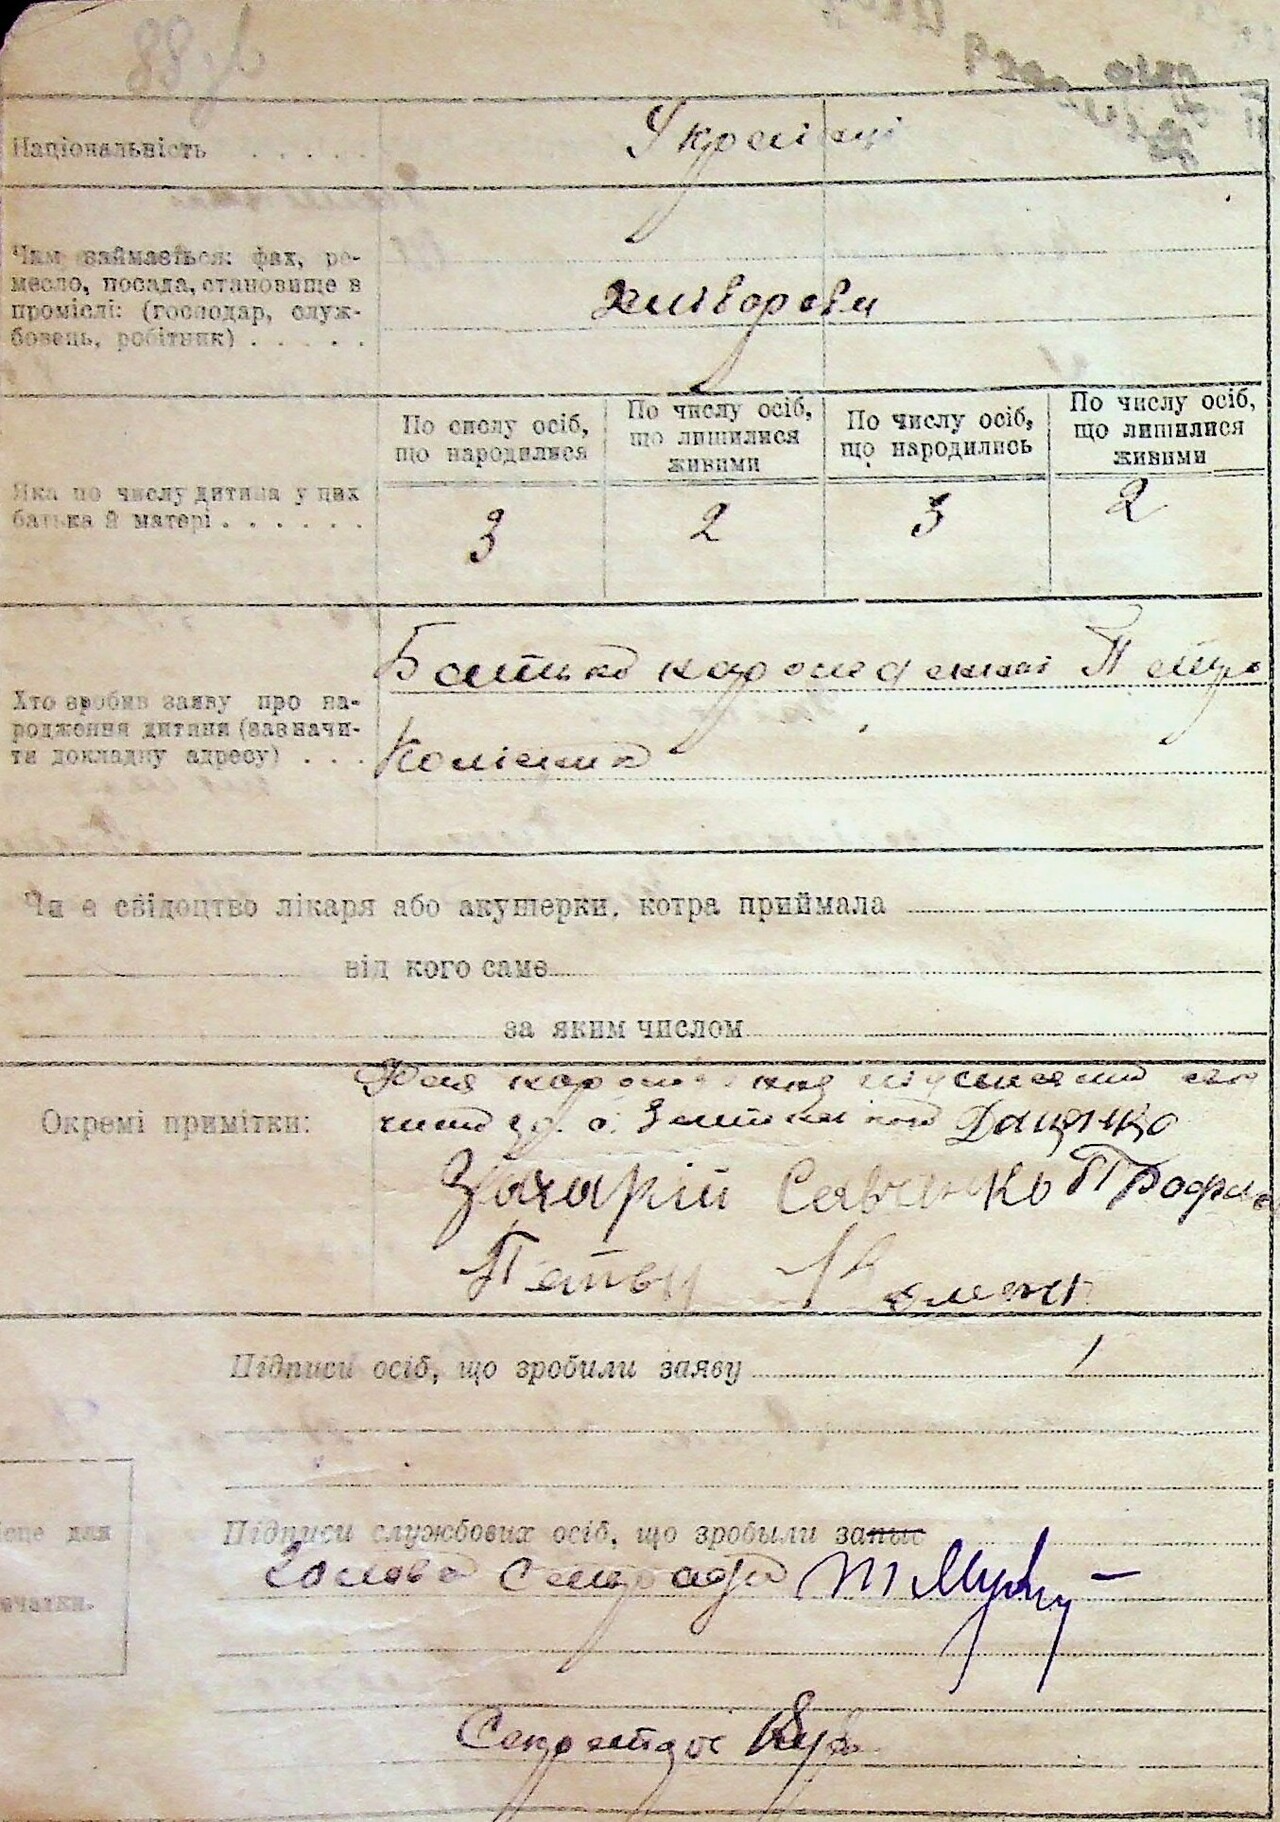 Національність . . . . .
Українці
Чим займається: фах, ре-
месло, посада, становище в
проміслі: (господар, служ-
бовець, робітник) . . . . .
Хлібороби
По числу осіб,
що народилися
По числу осіб,
що лишилися
живими
По числу осіб,
що народились
По числу осіб,
що лишилися
живими
Яка по числу дитина у цих
батька й матері . . . . . .
3 2 3 2
Хто зробив заяву про на-
родження дитини (зазначи-
ти докладну адресу) . . .
Батько народженої Петро
Колісник
Чи є свідоцтво лікаря або акушерки, котра приймала
від кого саме
за яким числом
Окремі примітки:
Даценко
Захарій Савченко Трофим
Підписи осіб, що зробили заяву
Підписи службових осіб, що зробыли запис
Голова Сільради
Секретар
ісце для
ечатки.